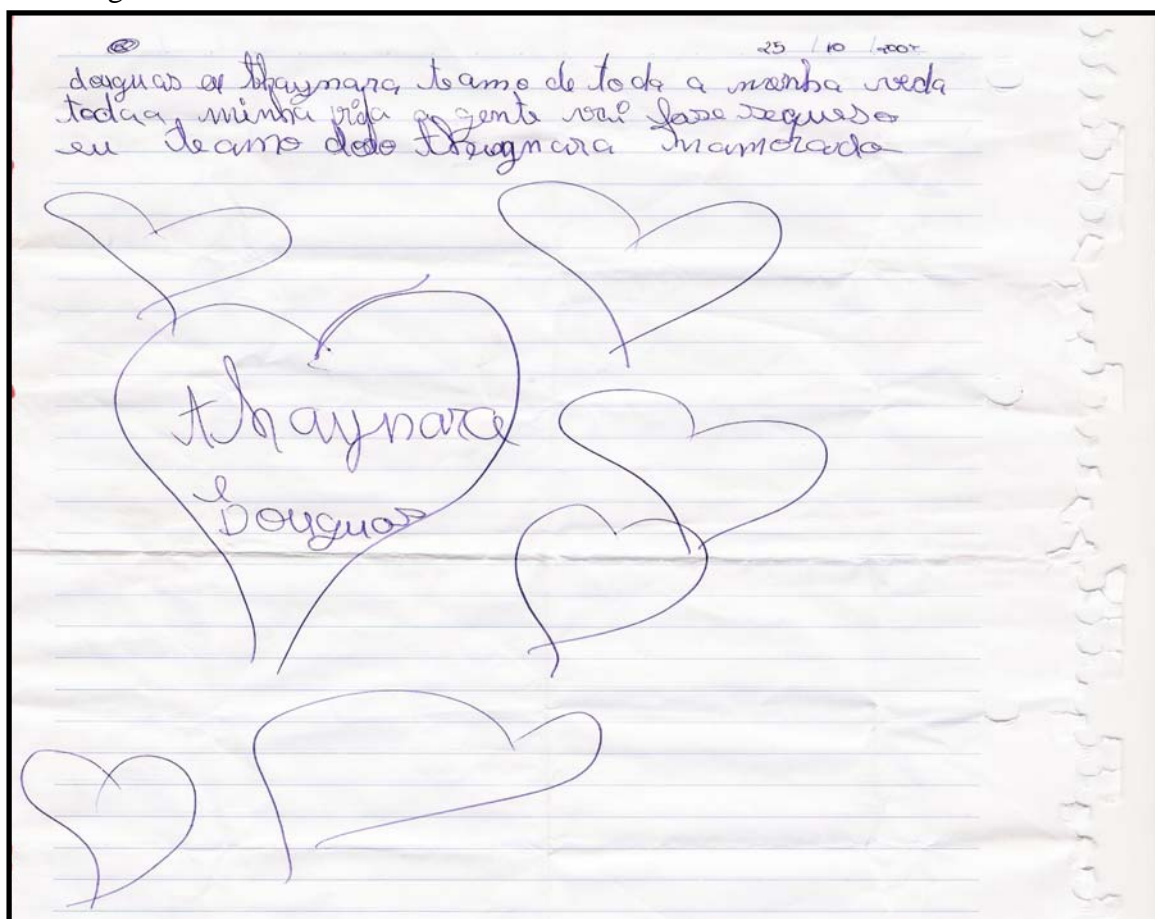 25 / 10 / 2007
douguas e thaynara te amo de toda a minha veda
todaa minha vida a gente vai fase sequeso
eu te amo thaynara namorado
thaynara
e
Douguas